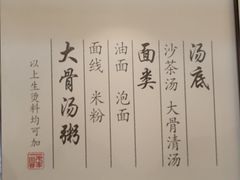 汤底
沙茶汤 大骨清汤
面类
油面 泡面
面线 米粉
大骨汤粥
以上生烫料均可加